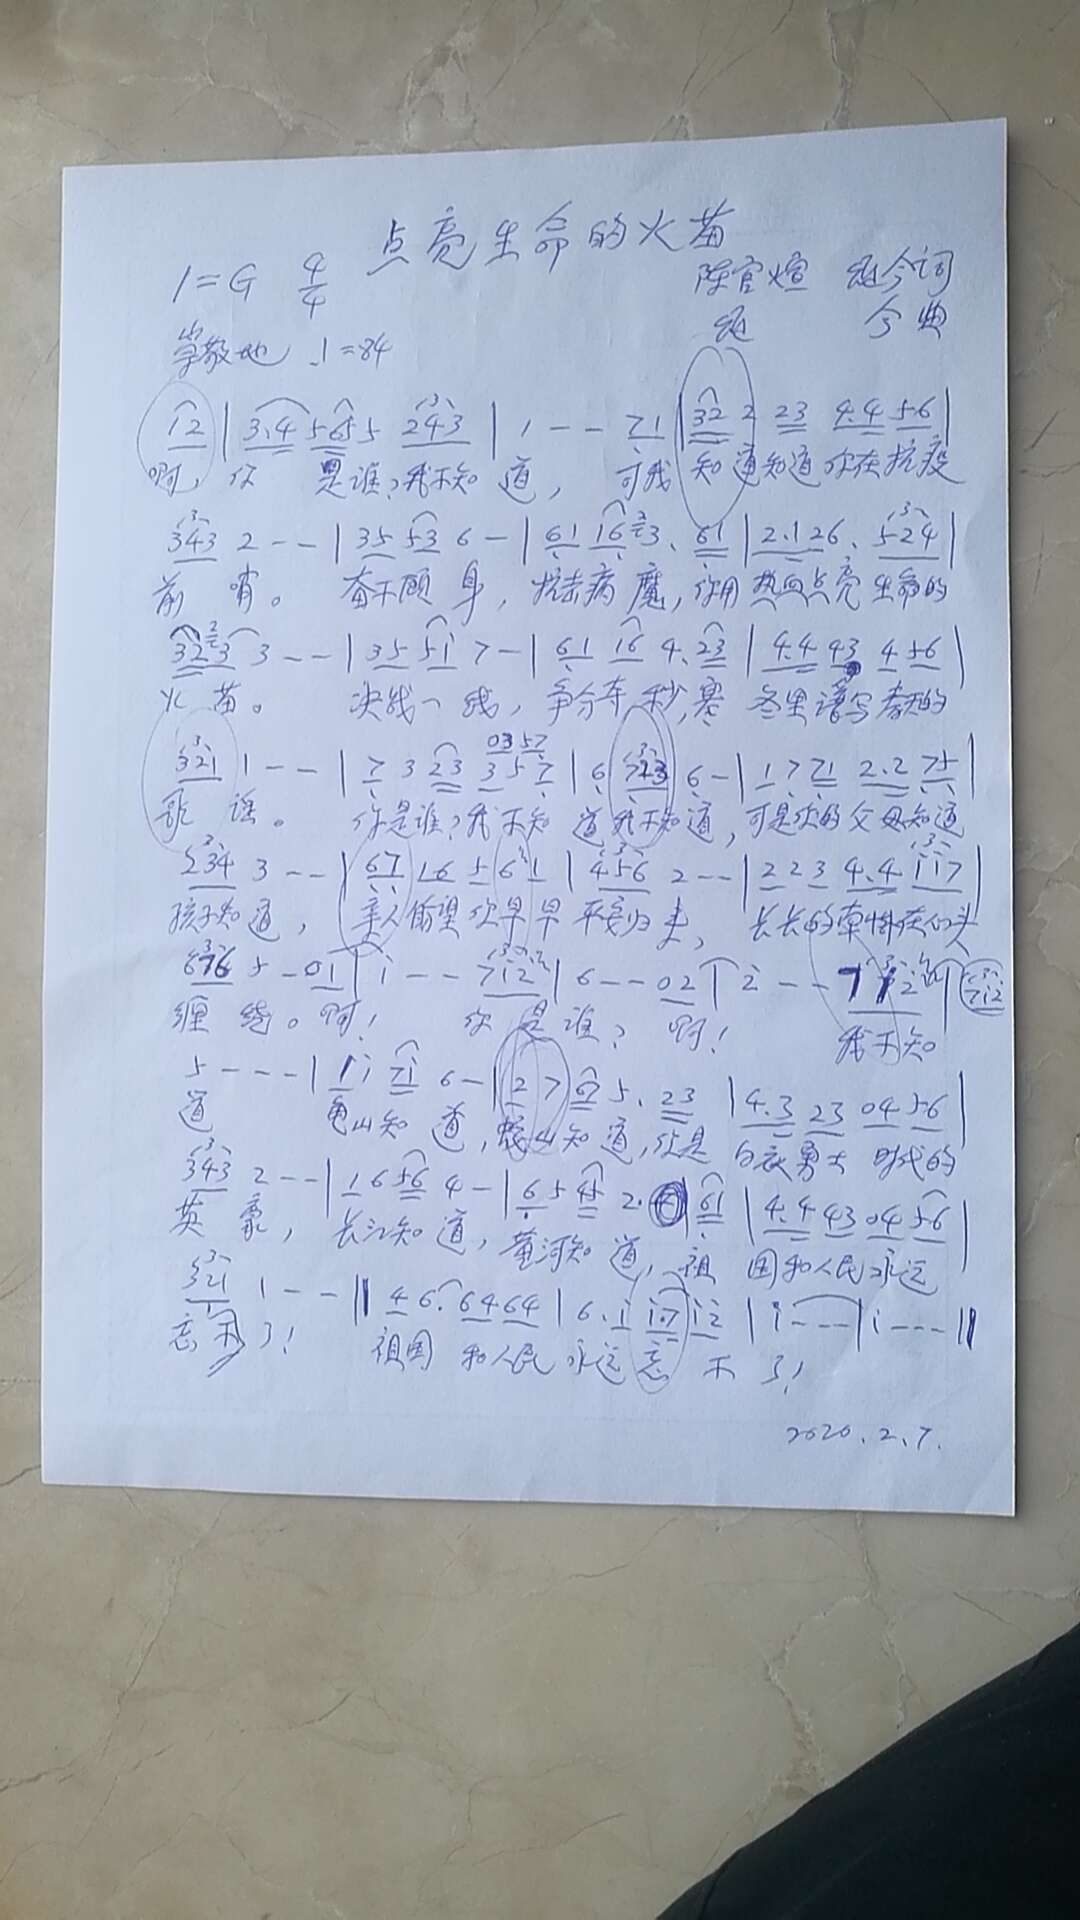 点亮生命的火苗
1=G 4/4 陈官煊 词
曲
♩=84
12 | 3.4 565 243 | 1 - - 71 | 32 2 23 4.4 56 |
啊，你 是谁？我不知 道， 可我 知道知道你在抗疫
343 2 - - | 35 53 6 - | 61 16 3. 61 | 2.1 26. 524 |
前 哨。 奋不顾 身，抗击病 魔，你用 热血点亮 生命的
3 - - | 35 51 7 - | 61 16 4. 23 | 4.4 43 4 56 |
火 苗。 决战一 线，争分夺 秒，寒 冬里谱写春天的
321 1 - - | 7 3 23 3 5 7 | 6 6 - | 1 7 71 2.2 75 |
歌 谣。 你是谁？我不知 道我不知道，可是你的父母知道
234 3 - - | 67 16 5 6 1 | 456 2 - - | 2 2 3 4.4 117 |
孩子知 道， 亲人偷望你早早 平安归 来， 长长的牵挂在心头
5 - 01 | 1 - - 712 | 6 - - 02 | 2 - -
缠 绕。啊！ 你 是 谁？ 啊！ 我不知
5 - - - | 1 1 71 6 - | 2 7 67 5. 23 | 4.3 23 04 56 |
道 龟山知 道，蛇山知 道，你是 白衣勇士 时代的
343 2 - - | 1 6 56 4 - | 6 5 45 2. 61 | 4.4 43 04 56 |
英 豪， 长江知 道，黄河知 道，祖 国和人民永远
321 1 - - || 4 6. 64 64 | 6. 1 1.7 12 | 1 - - - | 1 - - - ||
忘 不 了！ 祖国 和人民 永远 忘 不 了！
2020.2.7.